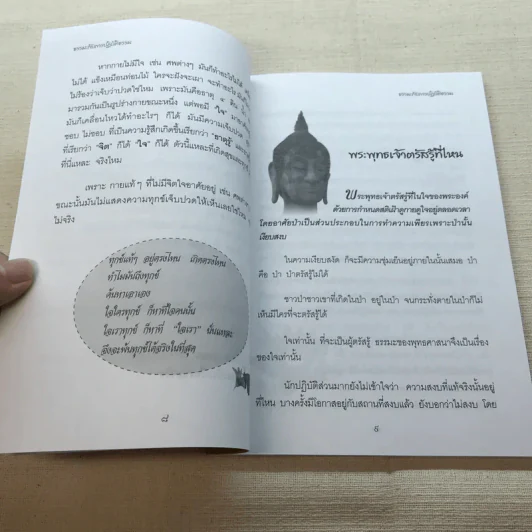 ธรรมะก็คือการปฏิบัติธรรม
หากกายไม่มีใจ เช่น ศพต่างๆ มันก็ทำอะไรไม่ได้
ไม่ได้ แข็งเหมือนท่อนไม้ ใครจะฝังจะเผา จะทำอะไร
ไม่ร้องว่าเจ็บว่าปวดใช่ไหม เพราะมันคือธาตุ ๔ ดิน
มารวมกันเป็นรูปร่างกายขณะหนึ่ง แต่พอมี "ใจ" มา
มันก็เคลื่อนไหวได้ทำอะไรๆ ก็ได้ มันมีความเจ็บปวด
ชอบ ไม่ชอบ ที่เป็นความรู้สึกเกิดขึ้นเรียกว่า "ธาตุรู้"
ที่เรียกว่า "จิต" ก็ได้ "ใจ" ก็ได้ ตัวนี้แหละที่เกิดสุข
ที่นี่แหละ จริงไหม
เพราะ กายแท้ๆ ที่ไม่มีจิตใจอาศัยอยู่ เช่น ศพ
ขณะนั้นมันไม่แสดงความทุกข์เจ็บปวดให้เห็นเลยใช่ไหม
ไม่จริง
ทุกข์แท้ๆ อยู่ตรงไหน เกิดตรงไหน
ทำไมมันถึงทุกข์
ค้นหาเอาเอง
ใจใครทุกข์ ก็หาที่ใจคนนั้น
ใจเราทุกข์ ก็หาที่ "ใจเรา" นั่นแหละ
จึงจะพ้นทุกข์ได้จริงในที่สุด
๘
ธรรมะก็คือการปฏิบัติธรรม
พระพุทธเจ้าตรัสรู้ที่ไหน
พระพุทธเจ้าตรัสรู้ที่ในใจของพระองค์
ด้วยการกำหนดสติเฝ้าดูกายดูใจอยู่ตลอดเวลา
โดยอาศัยป่าเป็นส่วนประกอบในการทำความเพียรเพราะป่านั้น
เงียบสงบ
ในความเงียบสงัด ก็จะมีความชุ่มเย็นอยู่ภายในนั้นเสมอ ป่า
คือ ป่า ป่าตรัสรู้ไม่ได้
ชาวป่าชาวเขาที่เกิดในป่า อยู่ในป่า จนกระทั่งตายในป่าก็ไม่
เห็นมีใครที่จะตรัสรู้ได้
ใจเท่านั้น ที่จะเป็นผู้ตรัสรู้ ธรรมะของพุทธศาสนาจึงเป็นเรื่อง
ของใจเท่านั้น
นักปฏิบัติส่วนมากยังไม่เข้าใจว่า ความสงบที่แท้จริงนั้นอยู่
ที่ไหน บางครั้งมีโอกาสอยู่กับสถานที่สงบแล้ว ยังบอกว่าไม่สงบ โดย
๙